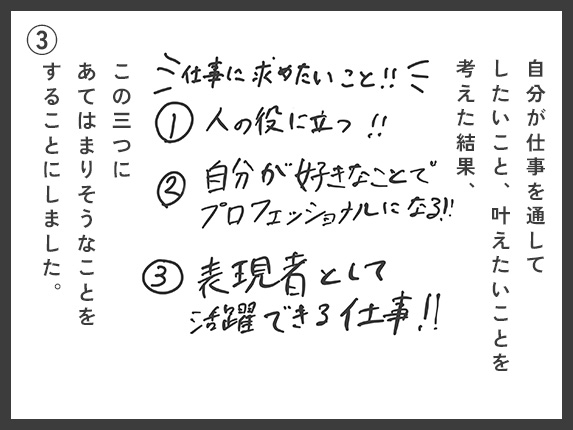 ③
自分が仕事を通して
したいこと、叶えたいことを
考えた結果、
仕事に求めたいこと!!
① 人の役に立つ!!
② 自分が好きなことで
プロフェッショナルになる!!
③ 表現者として
活躍できる仕事!!
この三つに
あてはまりそうなことを
することにしました。